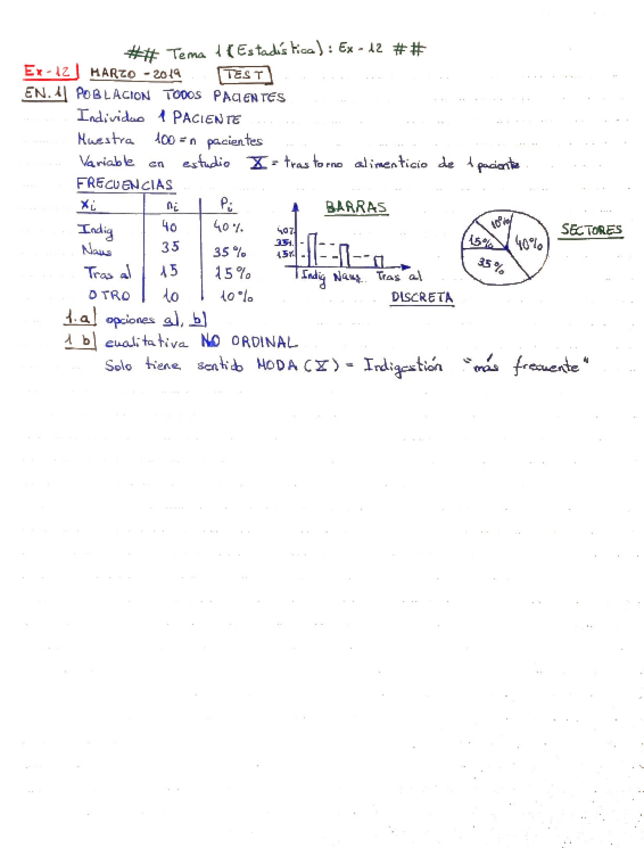 ## Tema 1 (Estadística): Ex-12 ##
Ex-12 MARZO-2019 TEST
EN.1 POBLACION TODOS PACIENTES
Individuo 1 PACIENTE
Muestra 100=n pacientes
Variable en estudio X = trastorno alimenticio de 1 paciente
FRECUENCIAS
xi ni Pi
Indig 40 40%
Naus 35 35%
Tras al 15 15%
OTRO 10 10%
BARRAS
40%
35%
15%
Indig Naus. Tras al
DISCRETA
10%
15% 40%
35%
SECTORES
1.a) opciones a), b)
1 b) cualitativa NO ORDINAL
Solo tiene sentido MODA (X) = Indigestión "más frecuente"